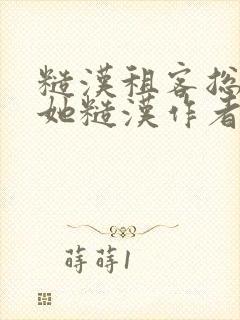 糙漢租客捴
她糙漢作者
蒔蒔1